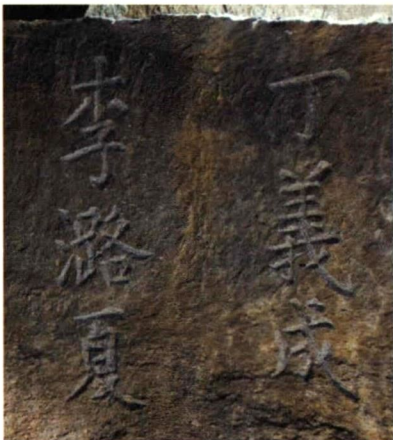 丁義成
李潞夏